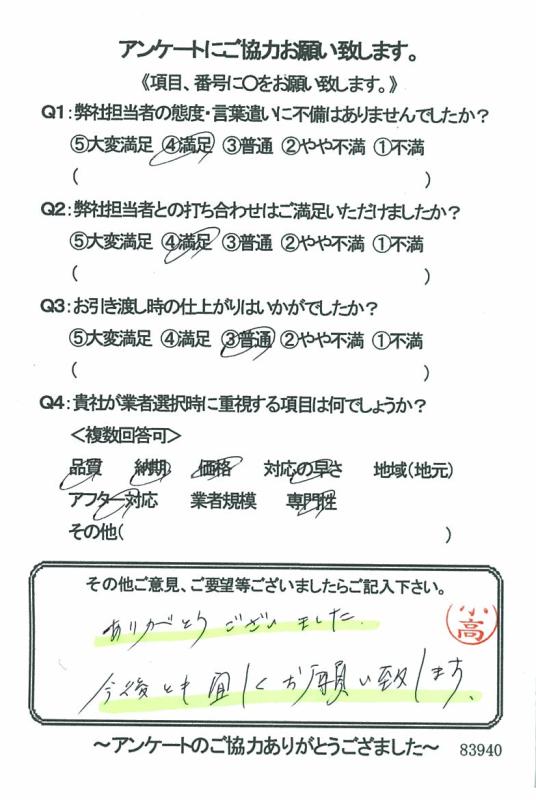 アンケートにご協力お願い致します。
《項目、番号に〇をお願い致します。》
Q1:弊社担当者の態度・言葉遣いに不備はありませんでしたか?
⑤大変満足 ④満足 ③普通 ②やや不満 ①不満
( )
Q2:弊社担当者との打ち合わせはご満足いただけましたか?
⑤大変満足 ④満足 ③普通 ②やや不満 ①不満
( )
Q3:お引き渡し時の仕上がりはいかがでしたか?
⑤大変満足 ④満足 ③普通 ②やや不満 ①不満
( )
Q4:貴社が業者選択時に重視する項目は何でしょうか?
<複数回答可>
品質 納期 価格 対応の早さ 地域(地元)
アフター対応 業者規模 専門性
その他( )
その他ご意見、ご要望等ございましたらご記入下さい。
ありがとうございました.
小高
今後とも宜しくお願い致します。
~アンケートのご協力ありがとうござました~ 83940